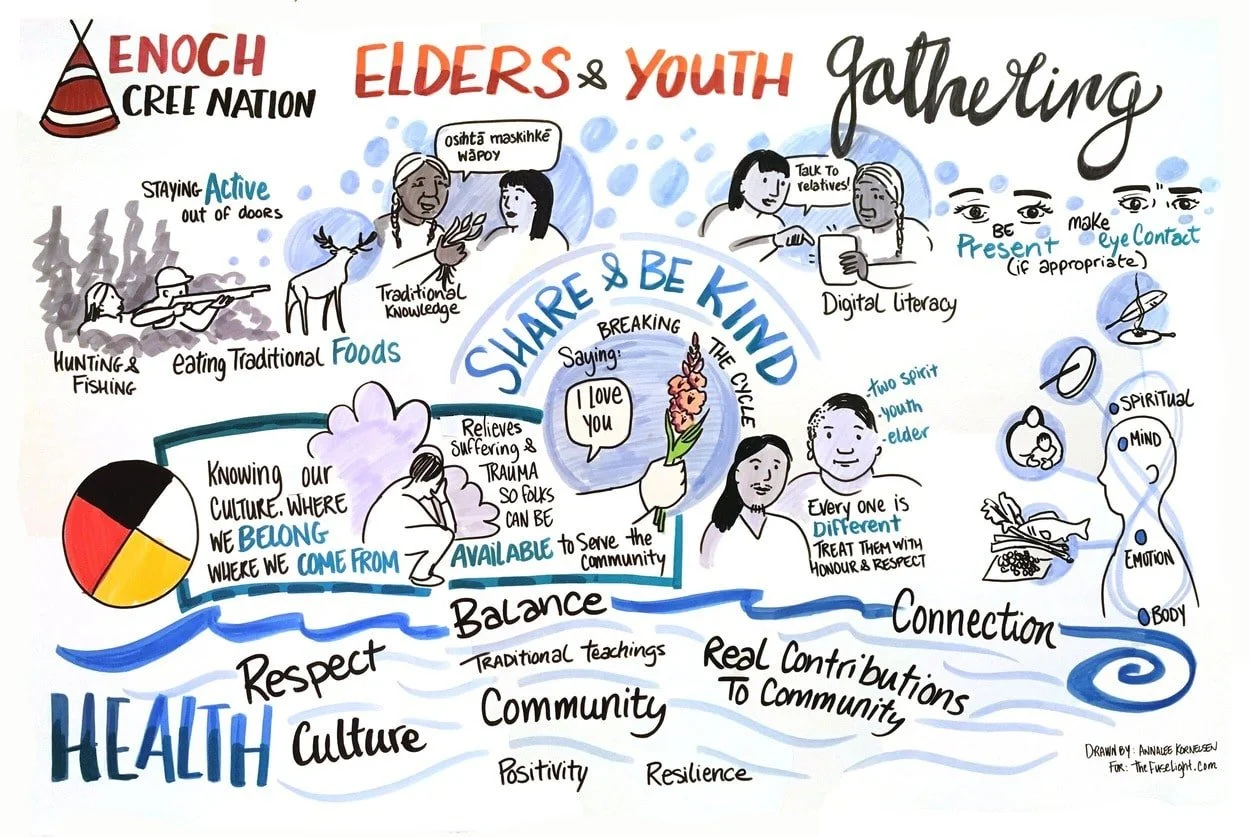 ENOCH
CREE NATION
ELDERS & YOUTH gathering
osihtā maskihkē
wāpoy
STAYING Active
out of doors
Traditional
Knowledge
HUNTING &
FISHING
eating Traditional Foods
TALK TO
relatives!
Digital Literacy
BE
Present
make
eye Contact
(if appropriate)
SHARE & BE KIND
BREAKING
THE CYCLE
Saying:
I LOVE
you
-two spirit
-youth
-elder
Every one is
Different
TREAT THEM WITH
HONOUR & RESPECT
SPIRITUAL
MIND
EMOTION
BODY
Knowing our
CULTURE. WHERE
WE BELONG
WHERE WE COME FROM
Relieves
Suffering &
TRAUMA
SO FOLKS
CAN BE
AVAILABLE to Serve the
community
Balance
Connection
Respect
Traditional teachings
Real Contributions
To Community
HEALTH
Culture
Community
Positivity
Resilience
DRAWN BY: ANNALEE KORNELSEN
FOR: TheFuselight.com